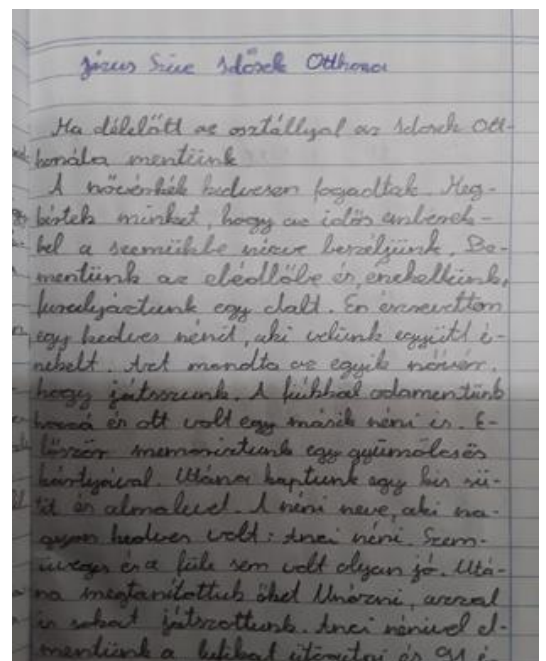 Jézus Szíve Idősek Otthona
Ma délelőtt az osztállyal az Idősek Ott-
honába mentünk
A nővérkék kedvesen fogadtak. Meg-
kértek minket, hogy az idős emberek-
kel a szemükbe nézve beszéljünk. Be-
mentünk az ebédlőbe és énekeltünk,
furulyáztunk egy dalt. Én észrevettem
egy kedves nénit, aki velünk együtt é-
nekelt. Azt mondta az egyik nővér,
hogy játsszunk. A fiúkkal odamentünk
hozzá és ott volt egy másik néni is. E-
lőször memoriztunk egy gyümölcsös
kártyával. Utána kaptunk egy kis sü-
tit és almalevet. A néni neve, aki na-
gyon kedves volt: Anci néni. Szem-
üveges és a füle sem volt olyan jó. Utá-
na megtanítottuk őket Unozni, azzal
is sokat játszottunk. Anci nénivel el-
mentünk a